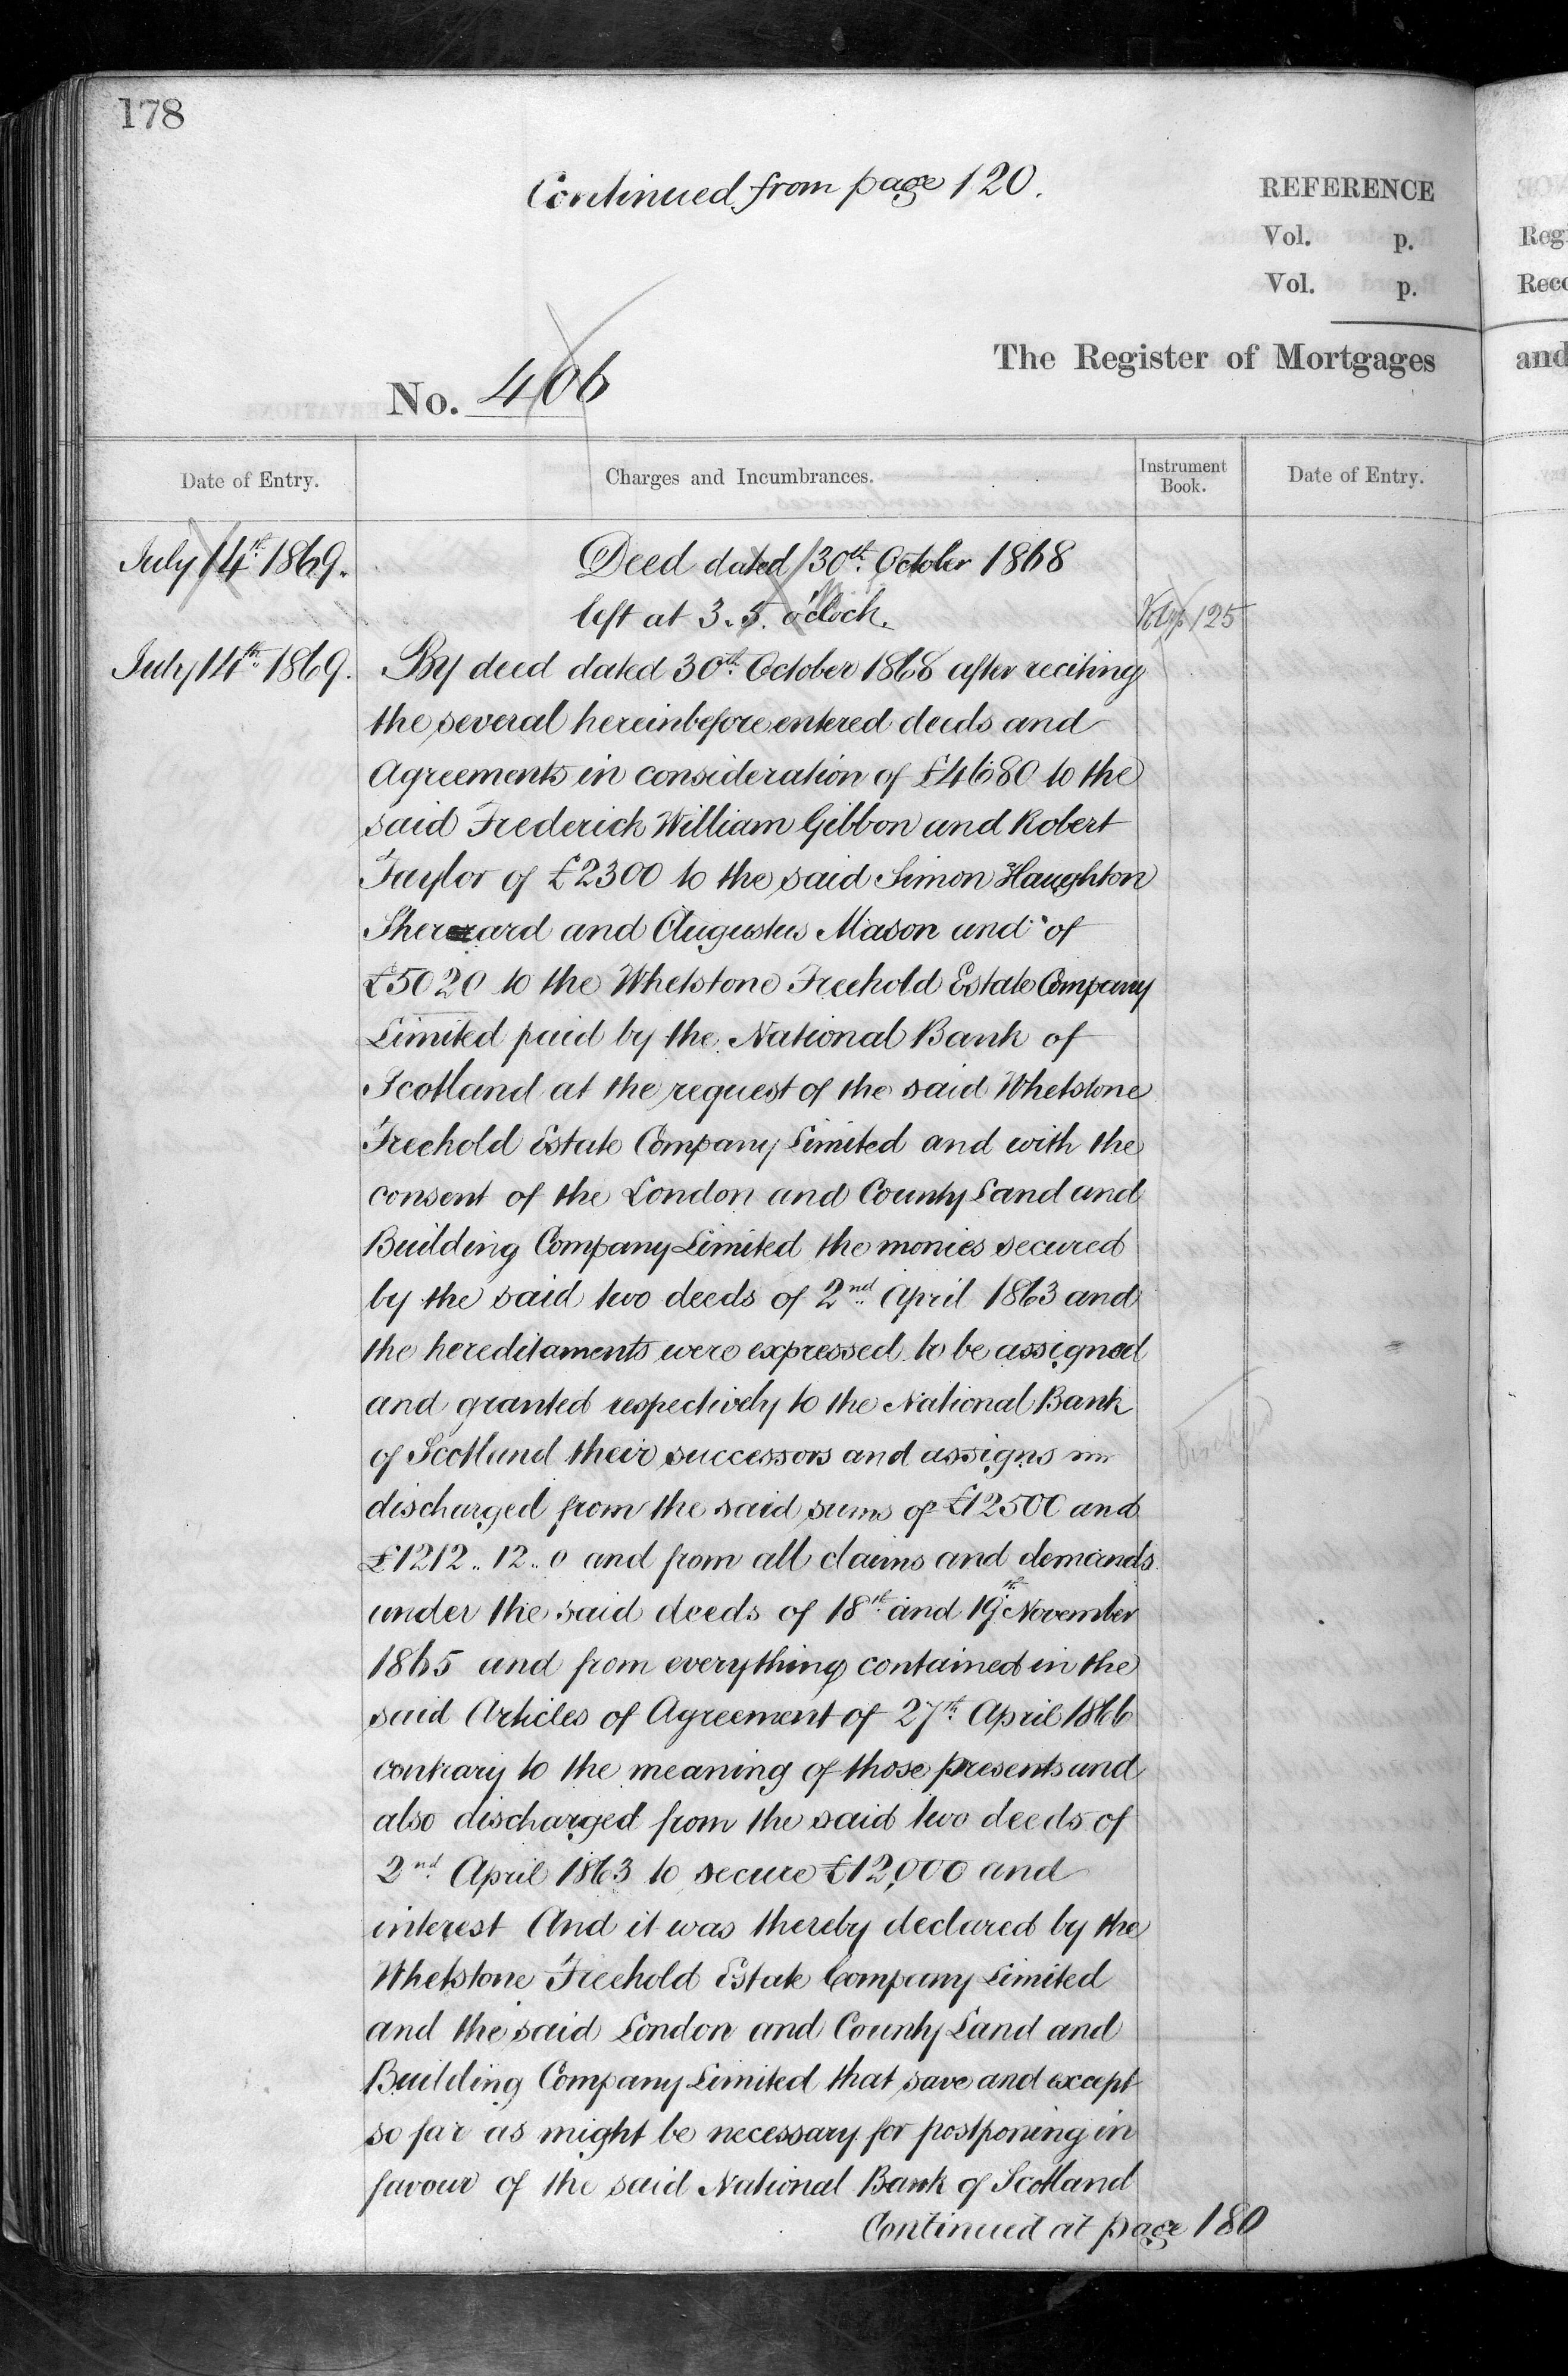 178
Continued from page 120.
REFERENCE
Vol. p.
Vol. p.
The Register of Mortgages
No. 406
Date of Entry.
Charges and Incumbrances.
Instrument Book.
Date of Entry.
July 14th. 1869.
Deed dated 30th. October 1868
left at 3.5. o'clock.
125
July 14th. 1869.
By deed dated 30th. October 1868 after reciting
the several hereinbefore entered deeds and
Agreements in consideration of £4680 to the
said Frederick William Gibbon and Robert
Taylor of £2300 to the said Simon Haughton
and Augustus Mason and of
£5020 to the Whetstone Freehold Estate Company
Limited paid by the National Bank of
Scotland at the request of the said Whetstone
Freehold Estate Company Limited and with the
consent of the London and County Land and
Building Company Limited the monies secured
by the said two deeds of 2nd. April 1863 and
the hereditaments were expressed to be assigned
and granted respectively to the National Bank
of Scotland their successors and assigns
discharged from the said sums of £12500 and
£1212.. 12.. 0 and from all claims and demands
under the said deeds of 18th. and 19th. November
1865 and from everything contained in the
said Articles of Agreement of 27th. April 1866
contrary to the meaning of those presents and
also discharged from the said two deeds of
2nd. April 1863 to secure £12,000 and
interest And it was thereby declared by the
Whetstone Freehold Estate Company Limited
and the said London and County Land and
Building Company Limited that save and except
so far as might be necessary for postponing in
favour of the said National Bank of Scotland
Continued at page 180
Reg
Reco
and